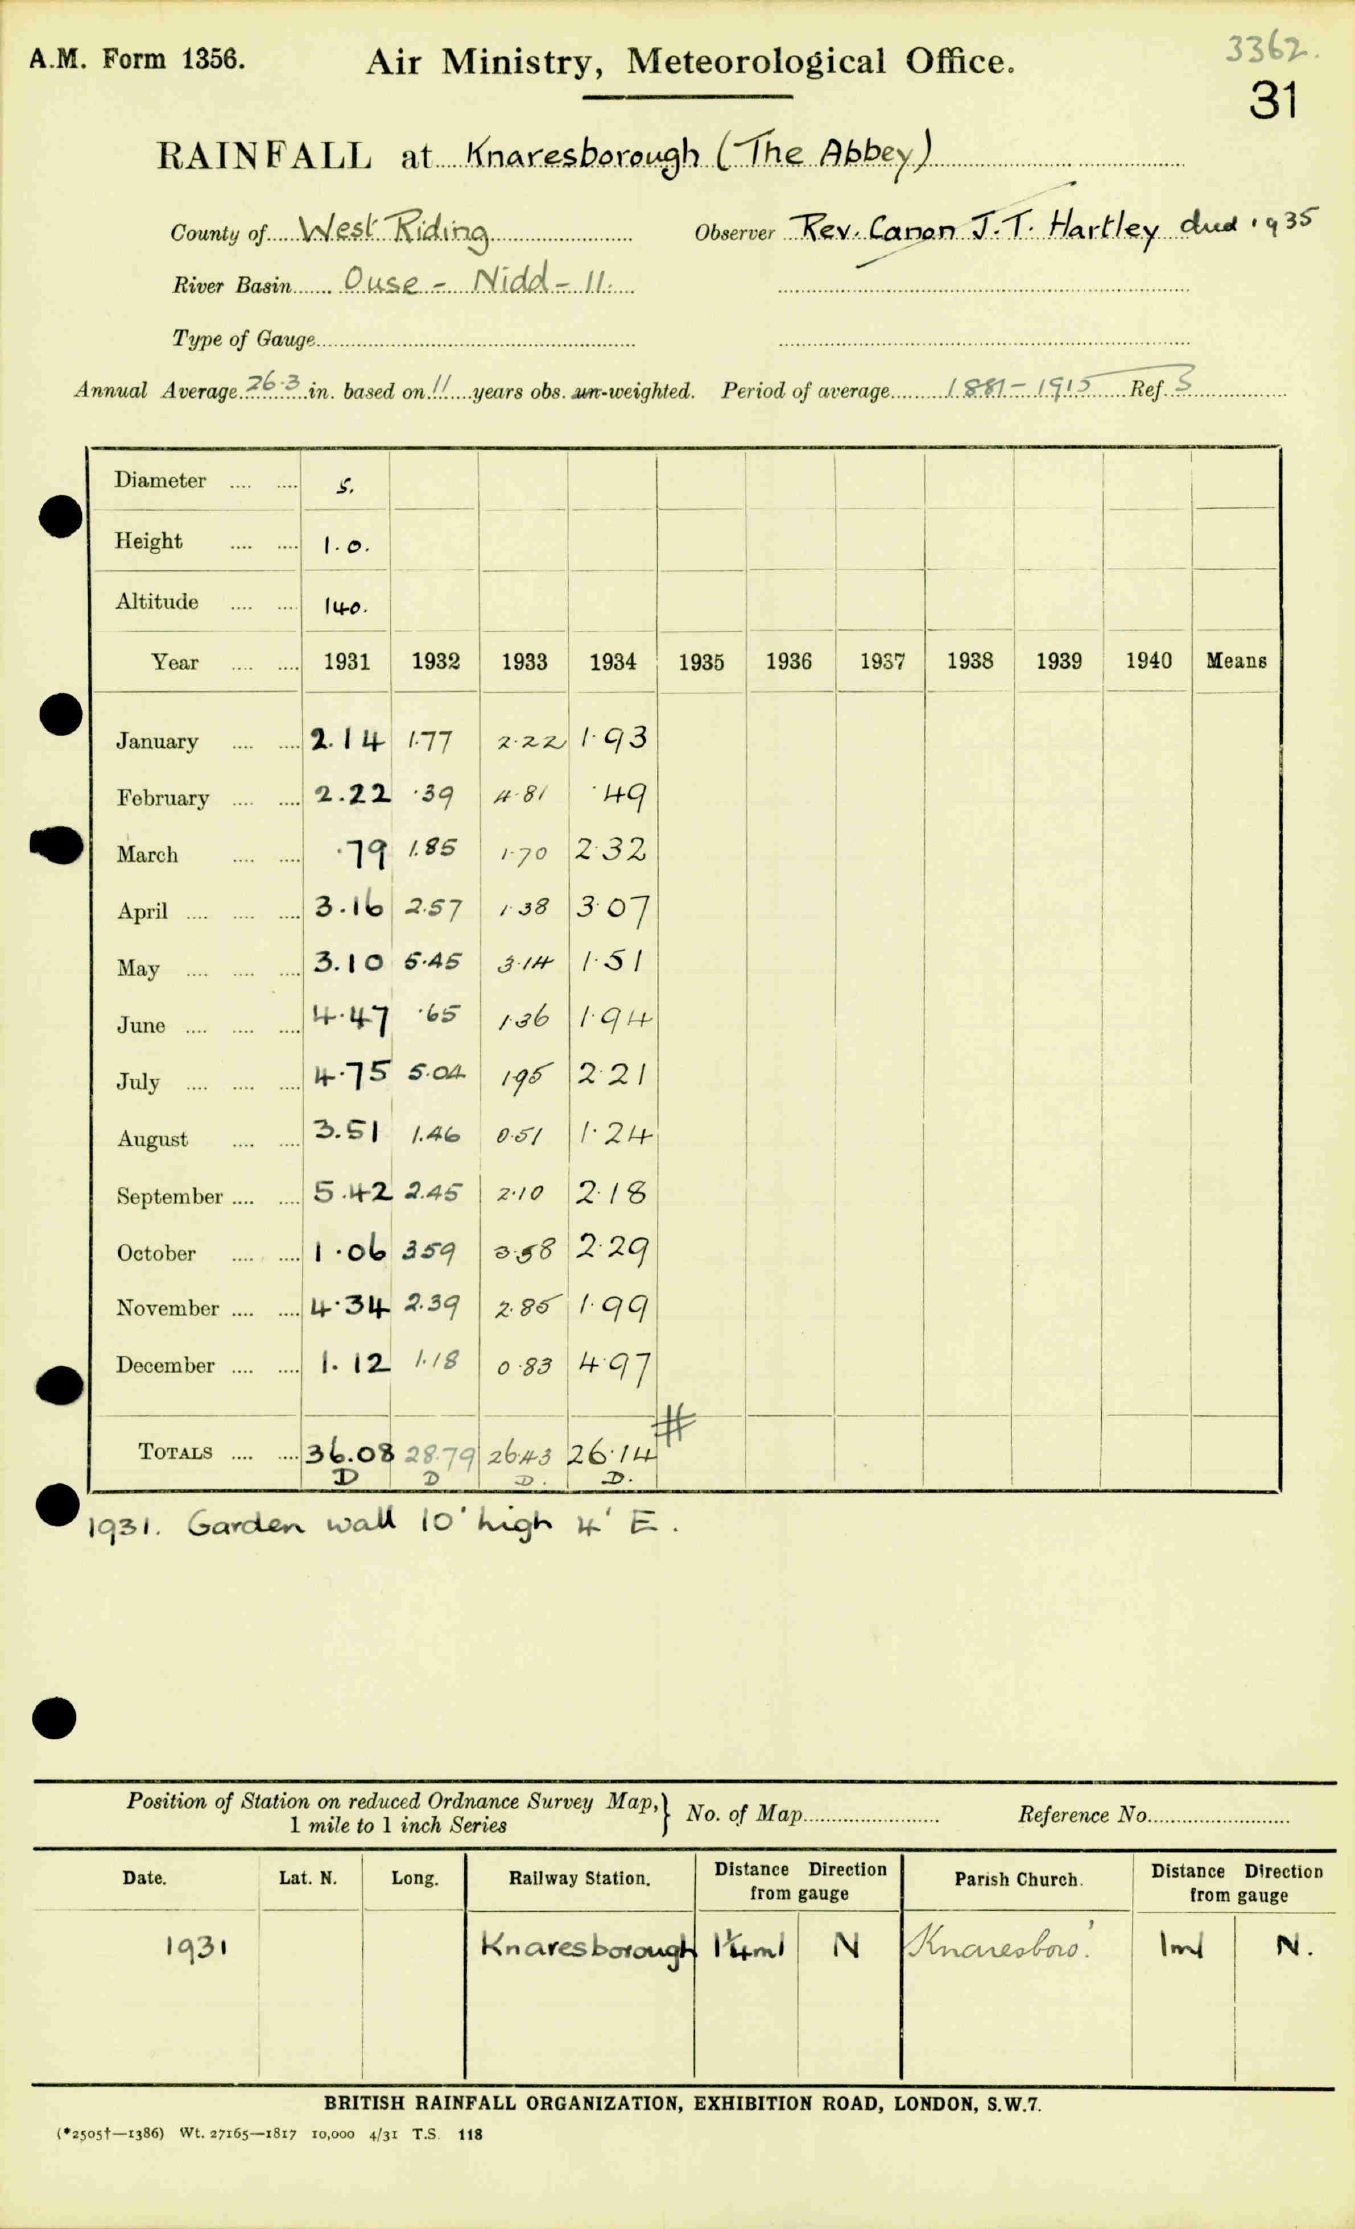 A.M. Form 1356.
Air Ministry, Meteorological Office.
3362.
31
RAINFALL at Knaresborough (The Abbey)
County of West Riding
Observer Rev. Canon J.T. Hartley died 1935
River Basin Ouse - Nidd - 11.
Type of Gauge
Annual Average 26.3 in. based on 11 years obs. un-weighted. Period of average 1881-1915 Ref. S
Diameter 5.
Height 1.0.
Altitude 140.
Year 1931 1932 1933 1934 1935 1936 1937 1938 1939 1940 Means
January 2.14 1.77 2.22 1.93
February 2.22 .39 4.81 .49
March .79 1.85 1.70 2.32
April 3.16 2.57 1.38 3.07
May 3.10 5.45 3.14 1.51
June 4.47 .65 1.36 1.94
July 4.75 5.04 1.95 2.21
August 3.51 1.46 0.51 1.24
September 5.42 2.45 2.10 2.18
October 1.06 3.59 3.58 2.29
November 4.34 2.39 2.85 1.99
December 1.12 1.18 0.83 4.97
#
TOTALS 36.08 28.79 26.43 26.14
D D D. D.
1931. Garden wall 10' high 4' E.
Position of Station on reduced Ordnance Survey Map, } No. of Map Reference No.
1 mile to 1 inch Series
Date. Lat. N. Long. Railway Station. Distance Direction from gauge Parish Church. Distance Direction from gauge
1931 Knaresborough 1¼ml N Knaresboro'. 1ml N.
BRITISH RAINFALL ORGANIZATION, EXHIBITION ROAD, LONDON, S.W.7.
(*2505†—1386) Wt. 27165—1817 10,000 4/31 T.S. 118